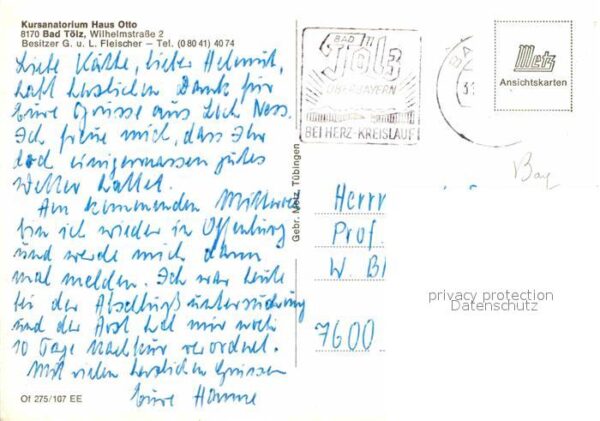 Kursanatorium Haus Otto
8170 Bad Tölz, Wilhelmstraße 2
Besitzer G. u. L. Fleischer – Tel. (0 80 41) 40 74
Liebe Käthe, lieber Helmut,
habt herzlichen Dank für
Eure Grüsse aus Loch Ness.
Ich freue mich, dass Ihr
doch einigermassen gutes
Wetter hattet.
Am kommenden Mittwoch
bin ich wieder in Offenburg
und werde mich dann
mal melden. Ich war heute
bei der Abschlußuntersuchung
und der Arzt hat mir noch
10 Tage Nachkur verordnet.
Mit vielen herzlichen Grüssen
Eure Hanne
Of 275/107 EE
Gebr. Metz, Tübingen
BAD
TÖLZ
OBERBAYERN
BEI HERZ-KREISLAUF
Metz
Ansichtskarten
Bay
Herrn
Prof.
W. Bl
7600
privacy protection
Datenschutz